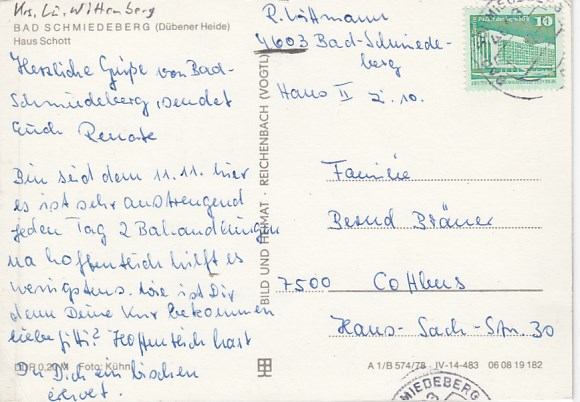 Krs. Lu. Wittenberg
BAD SCHMIEDEBERG (Dübener Heide)
Haus Schott
Herzliche Grüße von Bad-
Schmiedeberg, sendet
Euch Renate
Bin seid dem 11.11. hier
es ist sehr anstrengend
jeden Tag 2 Bahandlungen
na hoffenteich hilft es
wenigstens. Wie ist Dir
denn Deine Kur bekommen
liebe Jitti? Hoffenteich hast
Du Dich ein bischen
erholt.
DDR 0,20 M Foto: Kühn
BILD UND HEIMAT · REICHENBACH (VOGTL)
R. Wittmann
4603 Bad-Schmiede-
berg
Haus II Z. 10.
10
Familie
Bernd Bräuer
7500 Cottbus
Hans-Sach-Str. 30
A 1/B 574/78 IV-14-483 06 08 19 182
MIEDEBERG